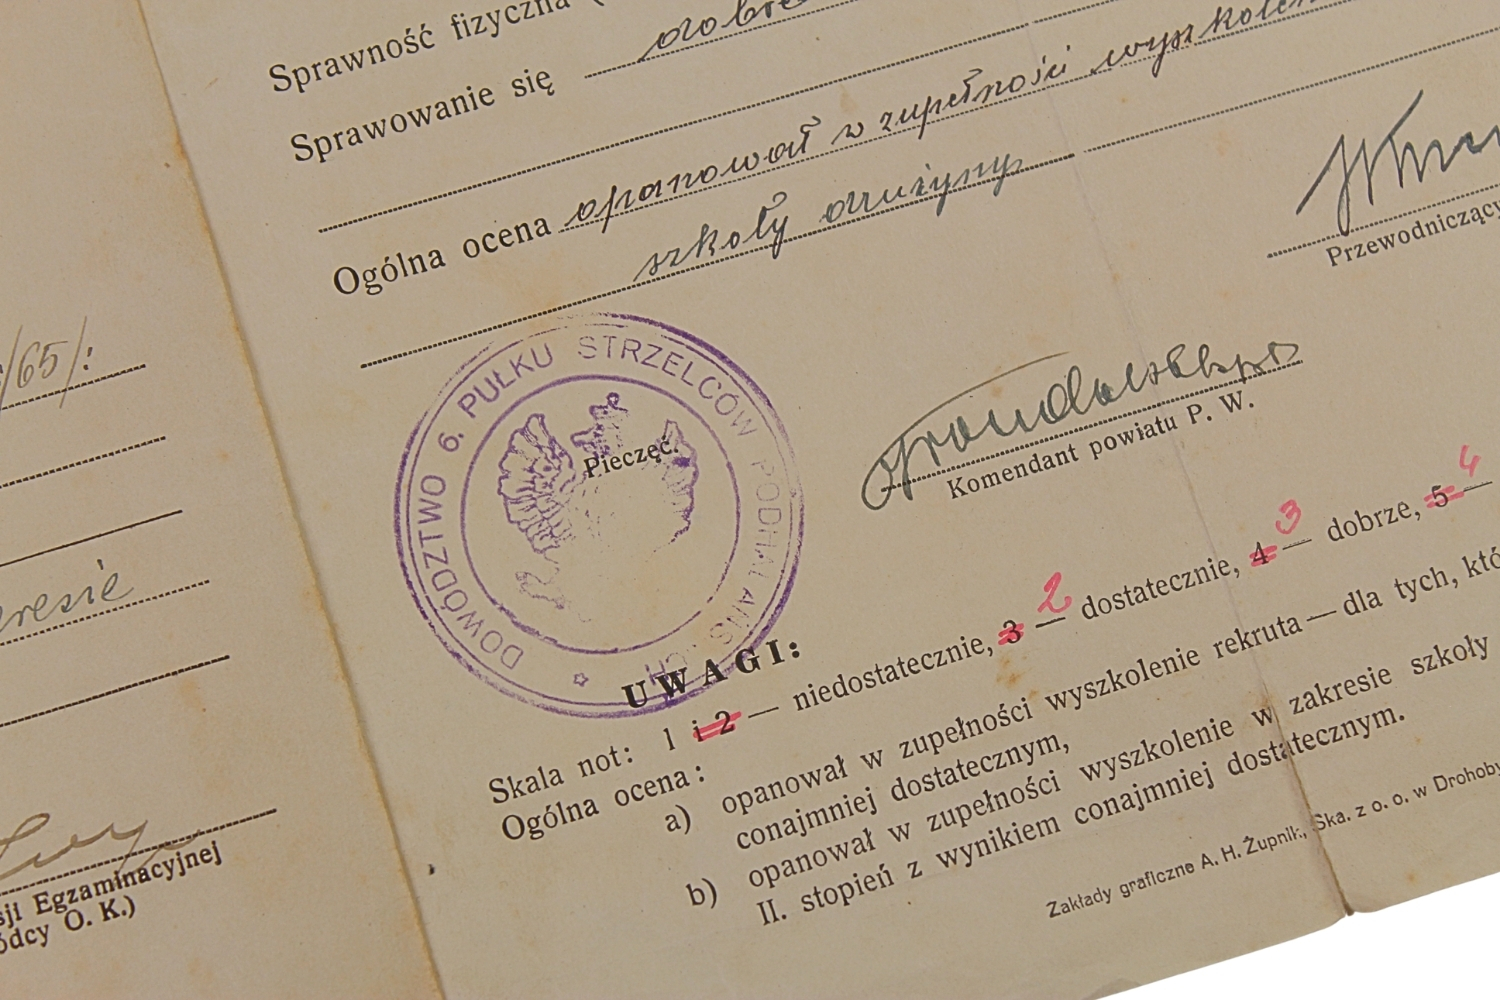 Sprawność fizyczna (
Sprawowanie się dobre
Ogólna ocena opanował w zupełności wyszkolen
szkoły drużyny
Przewodniczący
/65/:
DOWÓDZTWO 6. PUŁKU STRZELCÓW PODHALAŃSKICH
Pieczęć.
Komendant powiatu P. W.
UWAGI:
Skala not: 1 i 2 — niedostatecznie, 3 2 — dostatecznie, 4 3 — dobrze, 5 4 —
Ogólna ocena:
a) opanował w zupełności wyszkolenie rekruta — dla tych, któ
conajmniej dostatecznym,
b) opanował w zupełności wyszkolenie w zakresie szkoły
II. stopień z wynikiem conajmniej dostatecznym.
Zakłady graficzne A. H. Żupnik, Ska. z o. o. w Drohoby
resie
sji Egzaminacyjnej
ódcy O. K.)